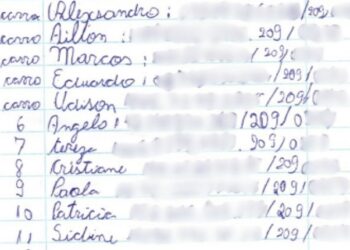 carro Alexsandro: /209/
carro Ailton: 209/
carro Marcos: /209/
carro Eduardo: /209/
carro Udison /209/
6 Angelo: /209/0
7 tereza 909/0
8 Kristiane /209/
9 Paola /209/
10 Patricia /209/
11 Sidine /209/